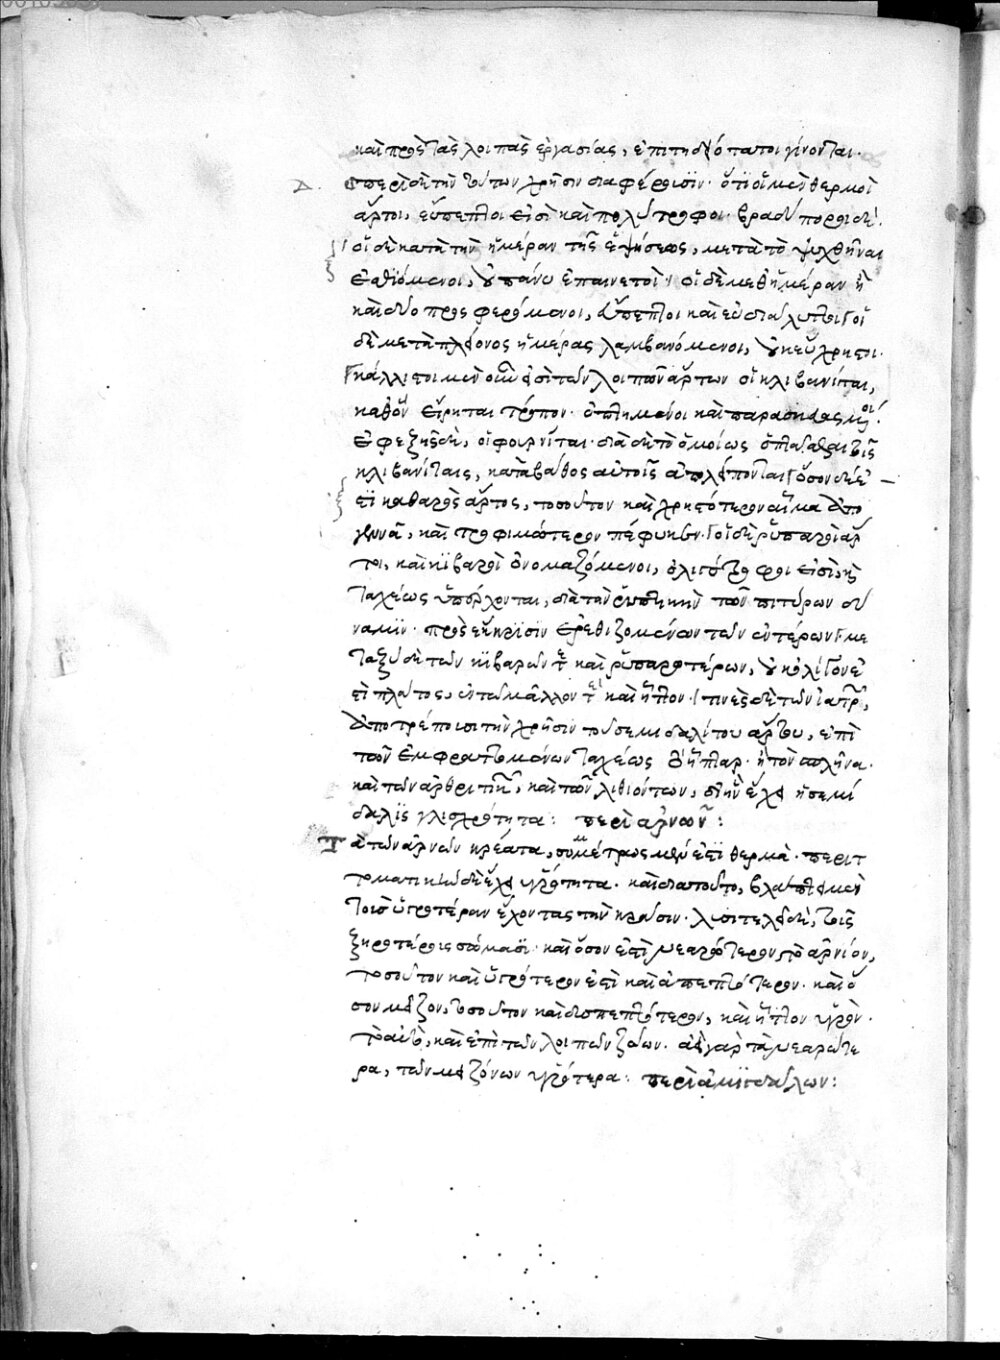 καὶ πρὸς τὰς λοιπὰς ἐργασίας, ἐπιτηδειότατοι γίνονται.
Δ. περὶ δὲ τὴν τούτων χρῆσιν διαφέρουσιν. ὅτι οἱ μὲν θερμοὶ
ἄρτοι, εὔπεπτοι εἰσὶ καὶ πολύτροφοι. βραδύποροι δέ.
οἱ δὲ κατὰ τὴν ἡμέραν τῆς ἑψήσεως, μετὰ τὸ ψυχθῆναι
ἐσθιόμενοι, οὐ πάνυ ἐπαινετοί. οἱ δὲ μεθ' ἡμέραν ἢ
καὶ δύο προσφερόμενοι, εὔπεπτοι καὶ εὐδιάλυτοι. οἱ
δὲ μετὰ πλείονος ἡμέρας λαμβανόμενοι, οὐκ εὔχρηστοι.
κάλλιστοι μὲν οὖν εἰσὶ τῶν λοιπῶν ἄρτων οἱ κλιβανῖται,
καθ' ὃν εἴρηται τρόπον. ὠπτημένοι καὶ παρασκευασμένοι.
ἐφεξῆς δὲ, οἱ φουρνῖται. διὰ δὲ τὸ ὁμοίως ὀπτᾶσθαι τοῖς
κλιβανίταις, κατὰ βάθος αὐτοῖς ἀπολείπονται. ὅσον δέ ἐ
στι καθαρὸς ἄρτος, τοσοῦτον καὶ χρηστότερον αἷμα ἀπο
γεννᾶ, καὶ τροφιμώτερον πέφυκεν. οἱ δὲ ῥυπαροὶ ἄρ
τοι, καὶ κιβαροὶ ὀνομαζόμενοι, ὀλιγότροφοι εἰσὶ, καὶ
ταχέως ὑπέρχονται, διὰ τὴν ῥυπτικὴν τῶν πιτύρων δύ
ναμιν. πρὸς ἔκκρισιν ἐρεθιζομένων τῶν ἐντέρων. με
ταξὺ δὲ τῶν κιβαρῶν τε καὶ ῥυπαρωτέρων, οὐκ ὀλίγον ἐ
στὶ πλάτος, ἐν τῷ μᾶλλόν τε καὶ ἧττον. τινὲς δὲ τῶν ἰατρῶν,
ἀποτρέπουσι τὴν χρῆσιν τοῦ σεμιδαλίτου ἄρτου, ἐπὶ
τῶν ἐμφραττομένων ταχέως τὸ ἧπαρ. ἢ τὸν σπλῆνα.
καὶ τῶν ἀρθριτικῶν, καὶ τῶν λιθιώντων, δι' ἣν ἔχει ἡ σεμί
δαλις γλισχρότητα: περὶ ἀρνῶν:
Τὰ τῶν ἀρνῶν κρέατα, συμμέτρως μέν ἐστι θερμὰ. περιτ
τωματικὴν δὲ ἔχει ὑγρότητα. καὶ διὰ τοῦτο, βλάπτει μὲν
τοὺς ὑγροτέραν ἔχοντας τὴν κρᾶσιν. λυσιτελεῖ δὲ, τοῖς
ξηροτέροις σώμασι. καὶ ὅσον ἐστὶ νεαρώτερον τὸ ἀρνίον,
τοσοῦτον καὶ ὑγρότερον ἐστὶ καὶ ἀπεπτότερον. καὶ ὅ
σον μεῖζον, τοσοῦτον καὶ δυσπεπτότερον, καὶ ἧττον ὑγρόν.
τὸ αὐτὸ, καὶ ἐπὶ τῶν λοιπῶν ζώων. ἀεὶ γὰρ τὰ νεαρώτε
ρα, τῶν μειζόνων ὑγρότερα: περὶ ἀμιγδάλων: